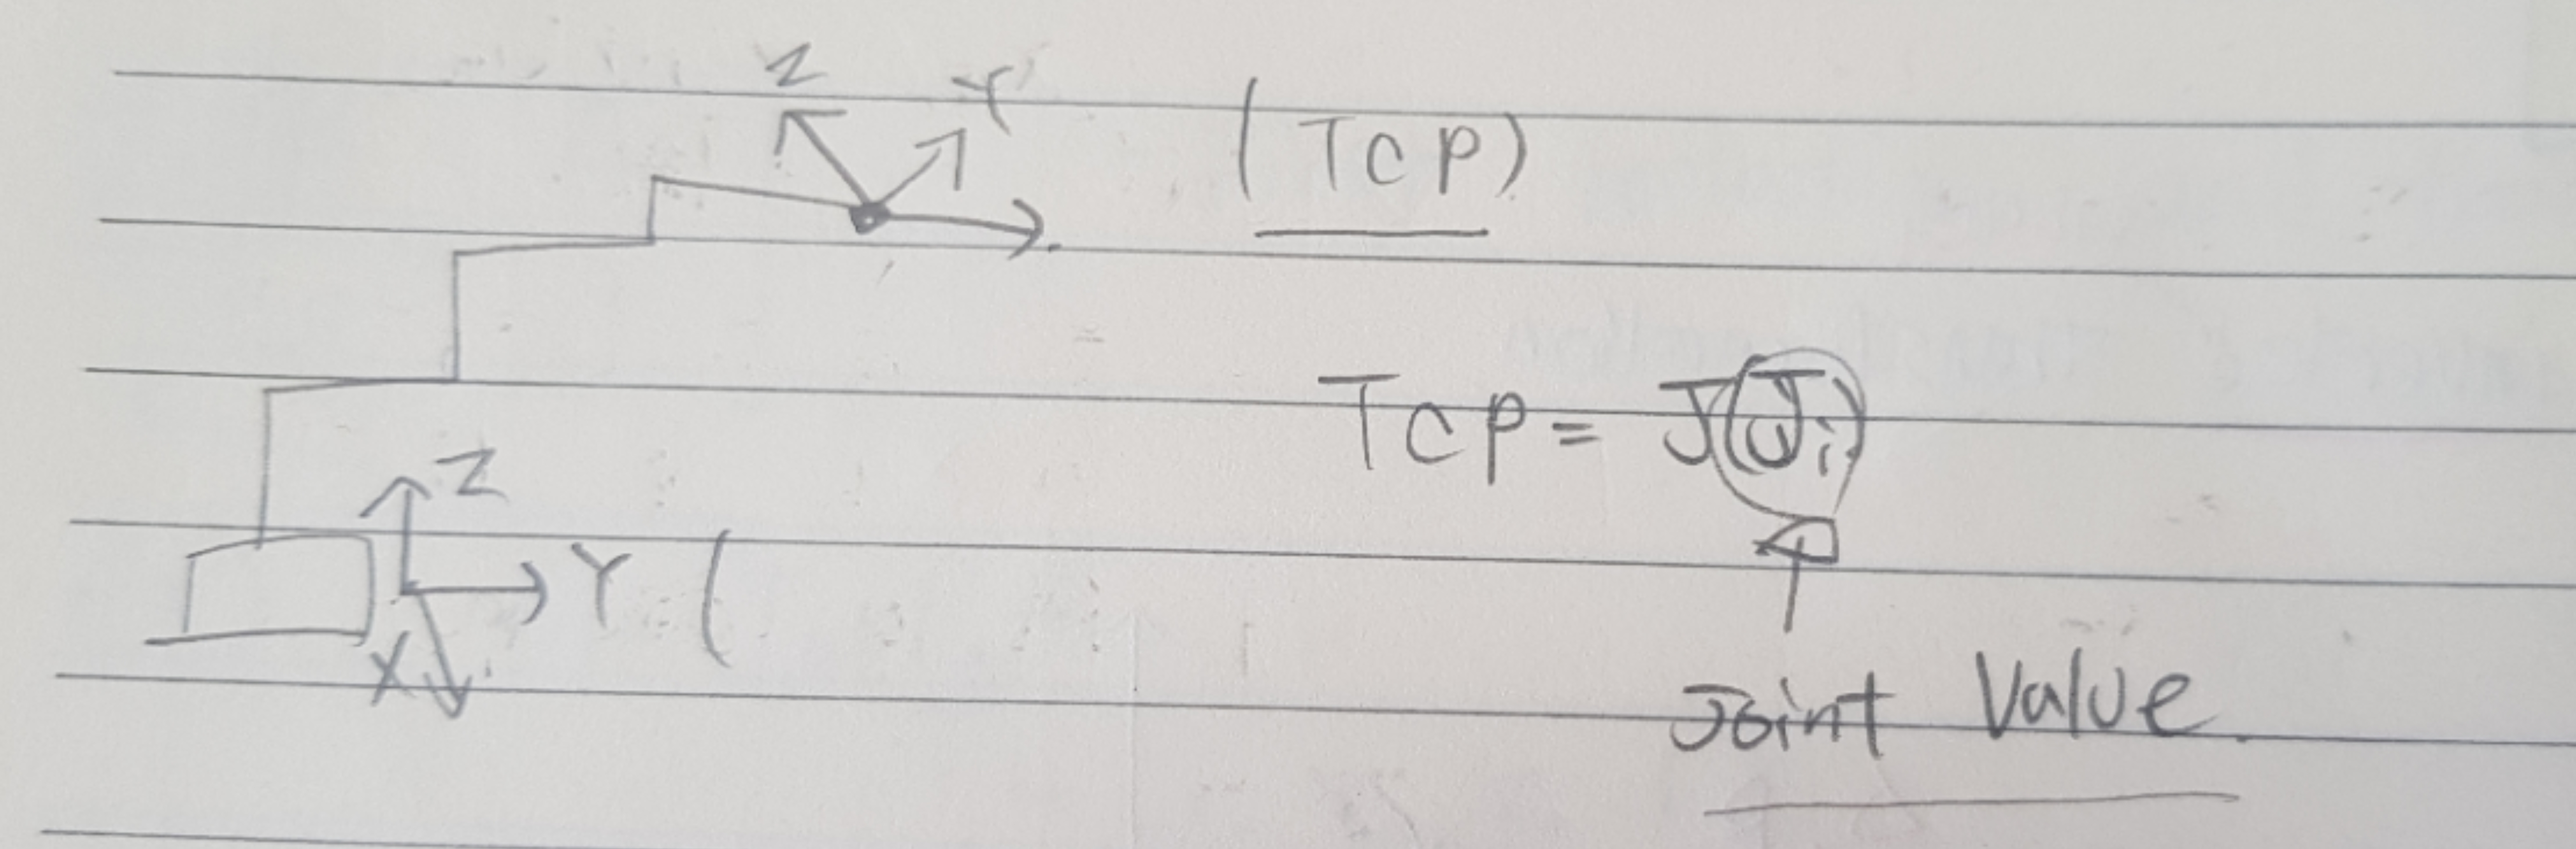 Z Y (TCP)
TCP = J(Ji)
Z
Y (
X
Joint Value.